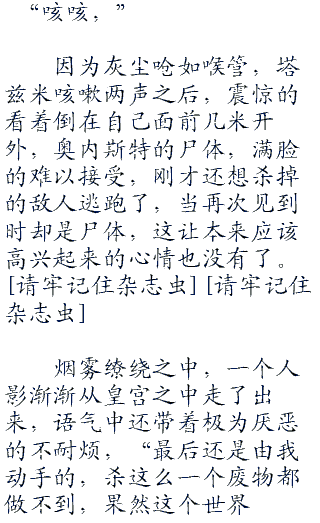 “咳咳，”
因为灰尘呛如喉管，塔
兹米咳嗽两声之后，震惊的
看着倒在自己面前几米开
外，奥内斯特的尸体，满脸
的难以接受，刚才还想杀掉
的敌人逃跑了，当再次见到
时却是尸体，这让本来应该
高兴起来的心情也没有了。
[请牢记住杂志虫][请牢记住
杂志虫]
烟雾缭绕之中，一个人
影渐渐从皇宫之中走了出
来，语气中还带着极为厌恶
的不耐烦，“最后还是由我
动手的，杀这么一个废物都
做不到，果然这个世界